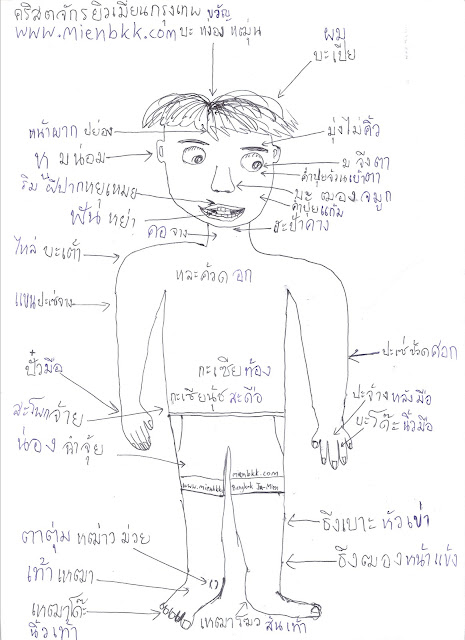 คริสตจักรยิวเมียนกรุงเทพ ขวัญ
www.mienbkk.com บะ หง่อง หฒุ่น
ผม
บะเปีย
หน้าผาก ปย่อง
มุ่งไม่คิ้ว
หู ม น่อม
ม จึงตา
ริม ฝีปากหยุเหมย
บะ ฒอง จมูก
ฟัน หย่า
คำปุยแก้ม
คอ จาง
ฮะป้าคาง
ไหล่ บะเต้า
หละคัวด อก
แขนปะเซ่จาง
ปะเซ่ ช้วด ศอก
กะเซียท้อง
ปั๋วมือ
กะเซียนุ้ช สะดือ
ปะจ้าง หลังมือ
สะโพกจ้าย
บะโด๊ะ นิ้วมือ
น่อง ฉำจุ้ย
mienbkk.com
www.mienbkk
Bangkok Iu-Mien
ธิงเบาะ หัว เข่า
ตาตุ่ม หฒ่าว ม่วย
ธิงฒอง หน้า แข้ง
เท้า เหฒา
เหฒาโด๊ะ
นิ้วเท้า
เหฒาโมว ส้นเท้า